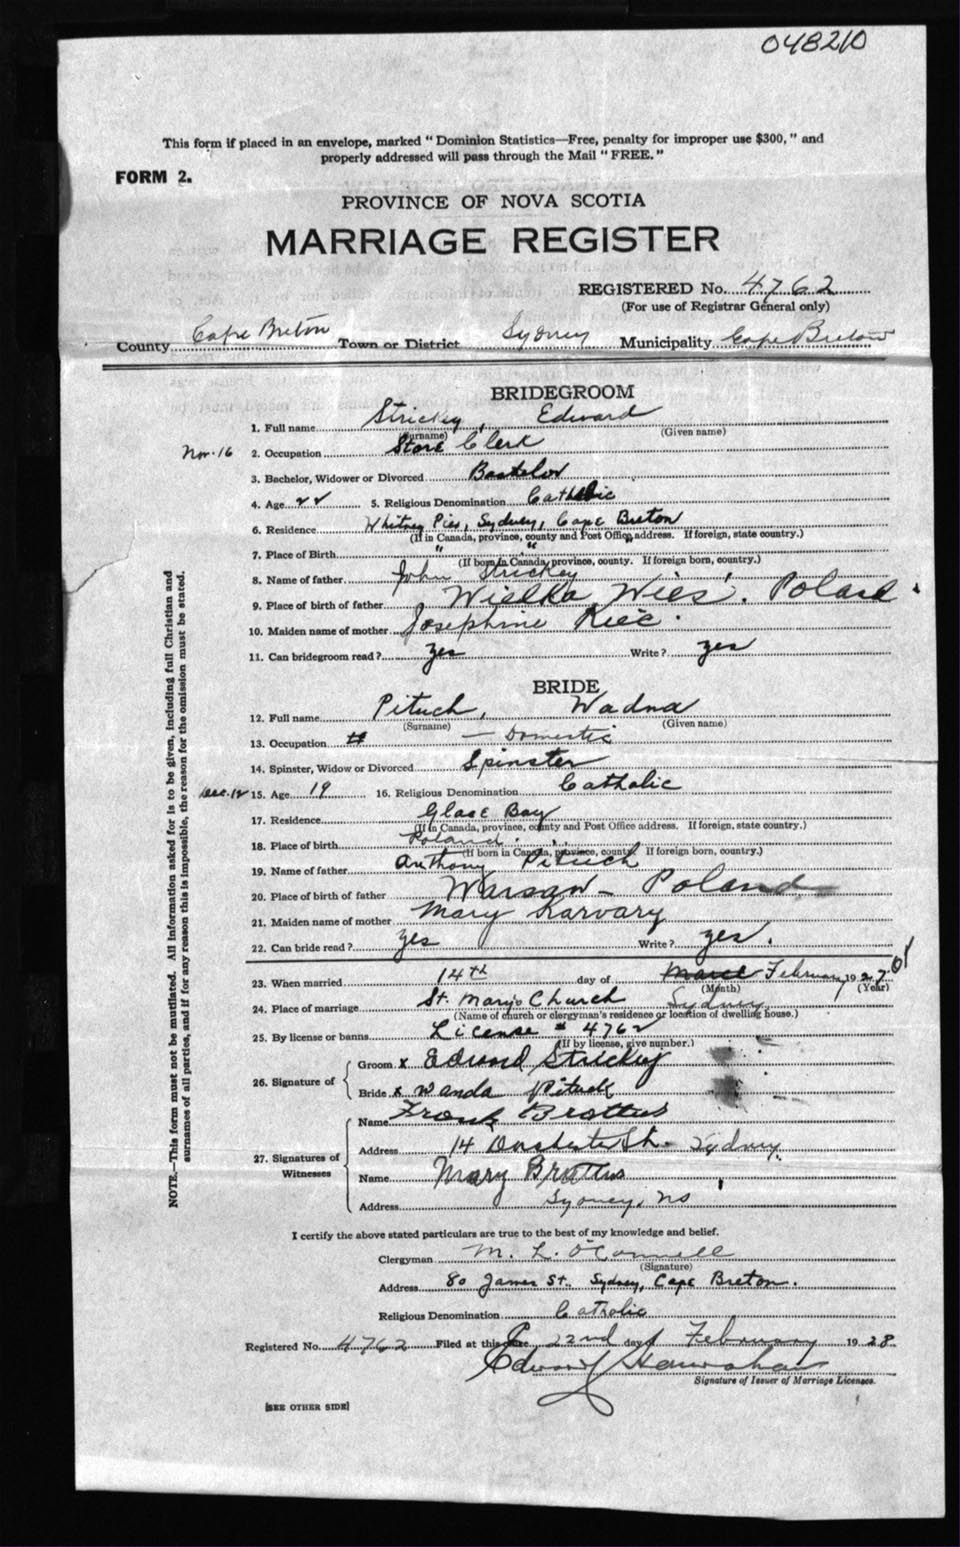 048210
This form if placed in an envelope, marked "Dominion Statistics—Free, penalty for improper use $300," and
properly addressed will pass through the Mail "FREE."
FORM 2.
PROVINCE OF NOVA SCOTIA
MARRIAGE REGISTER
REGISTERED No. 4762
(For use of Registrar General only)
County Cape Breton Town or District Sydney Municipality Cape Breton
BRIDEGROOM
1. Full name Strickey, Edward
(Surname) (Given name)
Nov. 16 2. Occupation Store Clerk
3. Bachelor, Widower or Divorced Bachelor
4. Age 22 5. Religious Denomination Catholic
6. Residence Whitney Pier, Sydney, Cape Breton
(If in Canada, province, county and Post Office address. If foreign, state country.)
7. Place of Birth " "
(If born in Canada, province, county. If foreign born, country.)
8. Name of father John Strickey
9. Place of birth of father Wielka Wies. Poland.
10. Maiden name of mother Josephine Kiec.
11. Can bridegroom read? yes Write? yes
BRIDE
12. Full name Pituch, Wadna
(Surname) (Given name)
13. Occupation — Domestic
14. Spinster, Widow or Divorced Spinster
Dec. 12 15. Age 19 16. Religious Denomination Catholic
17. Residence Glace Bay
(If in Canada, province, county and Post Office address. If foreign, state country.)
18. Place of birth Poland.
(If born in Canada, province, county. If foreign born, country.)
19. Name of father Anthony Pituch
20. Place of birth of father Warsaw — Poland
21. Maiden name of mother Mary Karvary
22. Can bride read? yes Write? yes.
23. When married 14th day of March February 1927
(Month) (Year)
24. Place of marriage St. Mary's Church Sydney
(Name of church or clergyman's residence or location of dwelling house.)
25. By license or banns License # 4762
(If by license, give number.)
26. Signature of
Groom x Edward Strickey
Bride x Wanda Pituch
27. Signatures of Witnesses
Name Frank Brattus
Address 14 St. Sydney
Name Mary Brattus
Address Sydney, NS
I certify the above stated particulars are true to the best of my knowledge and belief.
Clergyman M. L. O'Connell
(Signature)
Address 80 James St., Sydney, Cape Breton.
Religious Denomination Catholic
Registered No. 4762 Filed at this 22nd day of February 1928
Edward
Signature of Issuer of Marriage Licenses.
[SEE OTHER SIDE]
NOTE.—This form must not be mutilated. All information asked for is to be given, including full Christian and
surnames of all parties, and if for any reason this is impossible, the reason for the omission must be stated.